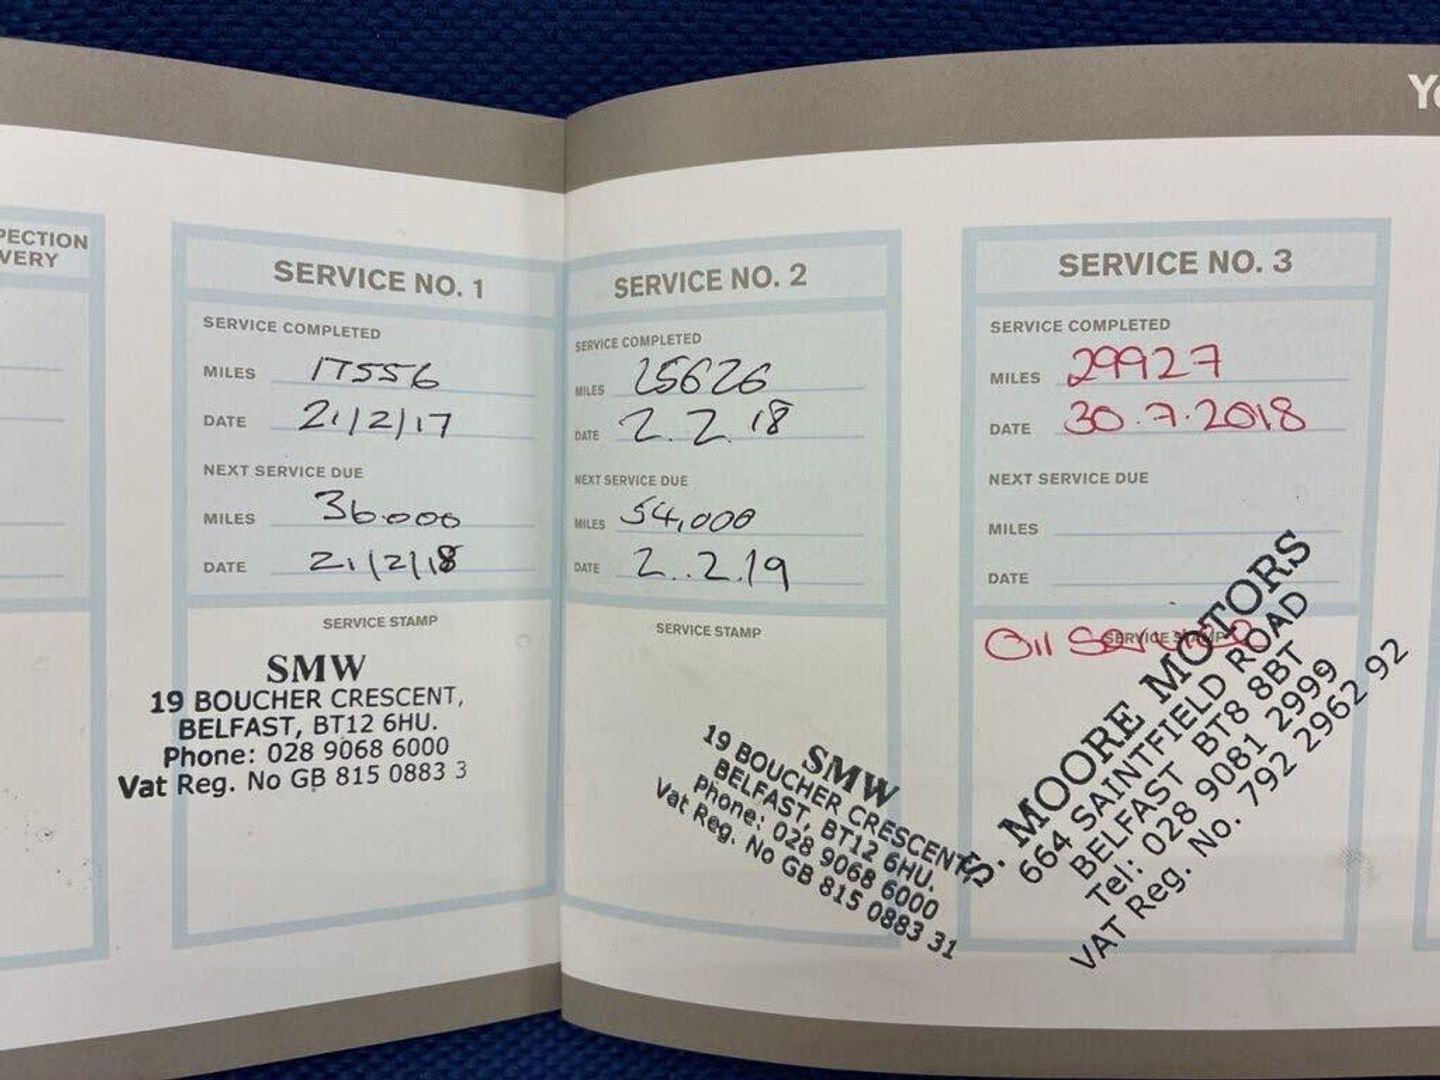 Yo
PECTION
VERY
SERVICE NO. 1
SERVICE COMPLETED
MILES 17556
DATE 21/2/17
NEXT SERVICE DUE
MILES 36.000
DATE 21/2/18
SERVICE STAMP
SMW
19 BOUCHER CRESCENT,
BELFAST, BT12 6HU.
Phone: 028 9068 6000
Vat Reg. No GB 815 0883 3
SERVICE NO. 2
SERVICE COMPLETED
MILES 25626
DATE 2.2.18
NEXT SERVICE DUE
MILES 54,000
DATE 2..2.19
SERVICE STAMP
SMW
19 BOUCHER CRESCENT,
BELFAST, BT12 6HU.
Phone: 028 9068 6000
Vat Reg. No GB 815 0883 31
SERVICE NO. 3
SERVICE COMPLETED
MILES 29927
DATE 30.7.2018
NEXT SERVICE DUE
MILES
DATE
SERVICE STAMP
Oil Service
S. MOORE MOTORS
664 SAINTFIELD ROAD
BELFAST BT8 8BT
Tel: 028 9081 2999
VAT Reg. No. 792 2962 92